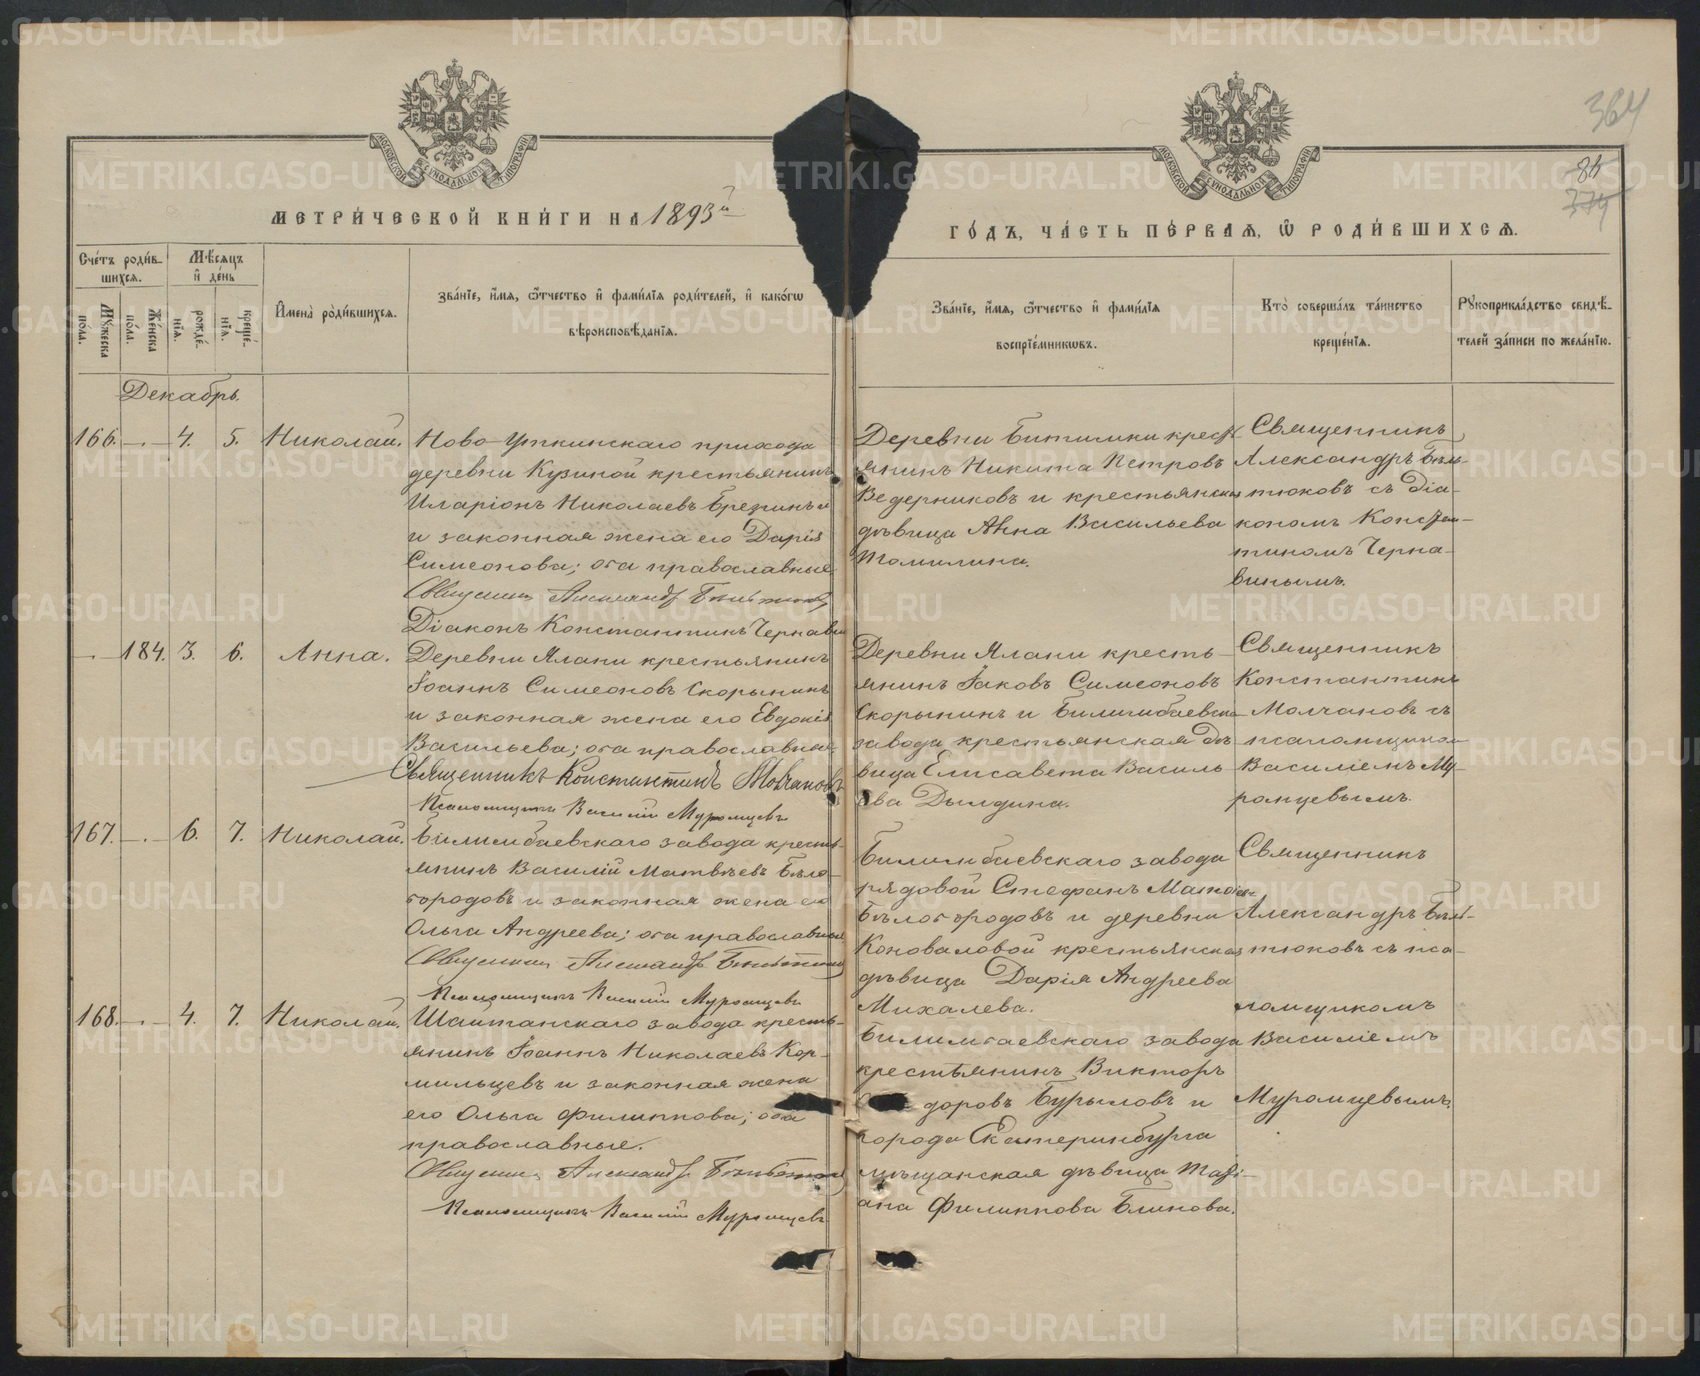 364
84
374
МОСКОВСКОЙ СѴНОДАЛЬНОЙ ТИПОГРАФІИ
МОСКОВСКОЙ СѴНОДАЛЬНОЙ ТИПОГРАФІИ
МЕТРИ́ЧЕСКОЙ КНИ́ГИ НА 1893й
ГО́ДЪ, ЧА́СТЬ ПЕ́РВАѦ, Ѿ РОДИ́ВШИХСѦ.
Сче́тъ роди́в-
шихсѧ.
Мꙋ́жеска
по́ла.
Же́нска
по́ла.
Мѣ́сѧцъ
и҆ де́нь
рожде́-
нїѧ.
креще́-
нїѧ.
И҆мена̀ роди́вшихсѧ.
Зва́нїе, и҆́мѧ, ѻ҆́тчество и҆ фами́лїѧ роди́телей, и҆ како́гѡ
вѣроисповѣ́данїѧ.
Зва́нїе, и҆́мѧ, ѻ҆́тчество и҆ фами́лїѧ
воспрїе́мникѡвъ.
Кто̀ соверша́лъ та́инство
креще́нїѧ.
Рꙋкоприкла́дство свидѣ́-
телей за́писи по жела́нїю.
Декабрь.
166. — 4. 5. Николай.
Ново-Уткинскаго прихода
деревни Кузиной крестьянинъ
Иларіонъ Николаевъ Брезгинъ
и законная жена его Дарія
Симеонова; оба православные
Священникъ Александръ Бѣльтюковъ
Діаконъ Константинъ Чернавинъ
Деревни Битимки крест-
янинъ Никита Петровъ
Ведерниковъ и крестьянская
дѣвица Анна Васильева
Томилина.
Священникъ
Александръ Бѣль-
тюковъ съ діа-
кономъ Констан-
тиномъ Черна-
винымъ.
— 184. 3. 6. Анна.
ДеревниЯлани крестьянинъ
Іоаннъ Симеоновъ Скорынинъ
и законная жена его Евдокія
Васильева; оба православные
Священникъ Константинъ Молчановъ
Псаломщикъ Василій Муромцевъ
Деревни Ялани кресть-
янинъ Іаковъ Симеоновъ
Скорынинъ и Билимбаевска
завода крестьянская дѣ
вица Елисавета Василь
ева Дылдина.
Священникъ
Константинъ
Молчановъ съ
псаломщикомъ
Василіемъ Му-
ромцевымъ.
167. — 6. 7. Николай.
Билимбаевскаго завода кресть-
янинъ Василій Матвѣевъ Бѣло-
городовъ и законная жена его
Ольга Андреева; оба православные
Священникъ Александръ Бѣльтюковъ
Псаломщикъ Василій Муромцевъ
Билимбаевскаго завода
рядовой Стефанъ Матвіевъ
Бѣлогородовъ и деревни
Коноваловой крестьянская
дѣвица Дарія Андреева
Михалева.
Священникъ
Александръ Бѣль-
тюковъ съ пса-
ломщикомъ
Василіемъ
Муромцевымъ.
168. — 4. 7. Николай.
Шайтанскаго завода кресть-
янинъ Іоаннъ Николаевъ Кор-
мильцевъ и законная жена
его Ольга Филиппова; оба
православные.
Священникъ Александръ Бѣльтюковъ
Псаломщикъ Василій Муромцевъ
Билимбаевскаго завода
крестьянинъ Викторъ
доровъ Бурыловъ и
города Екатеринбурга
мѣщанская дѣвица Марі-
ана Филиппова Блинова.
METRIKI.GASO-URAL.RU